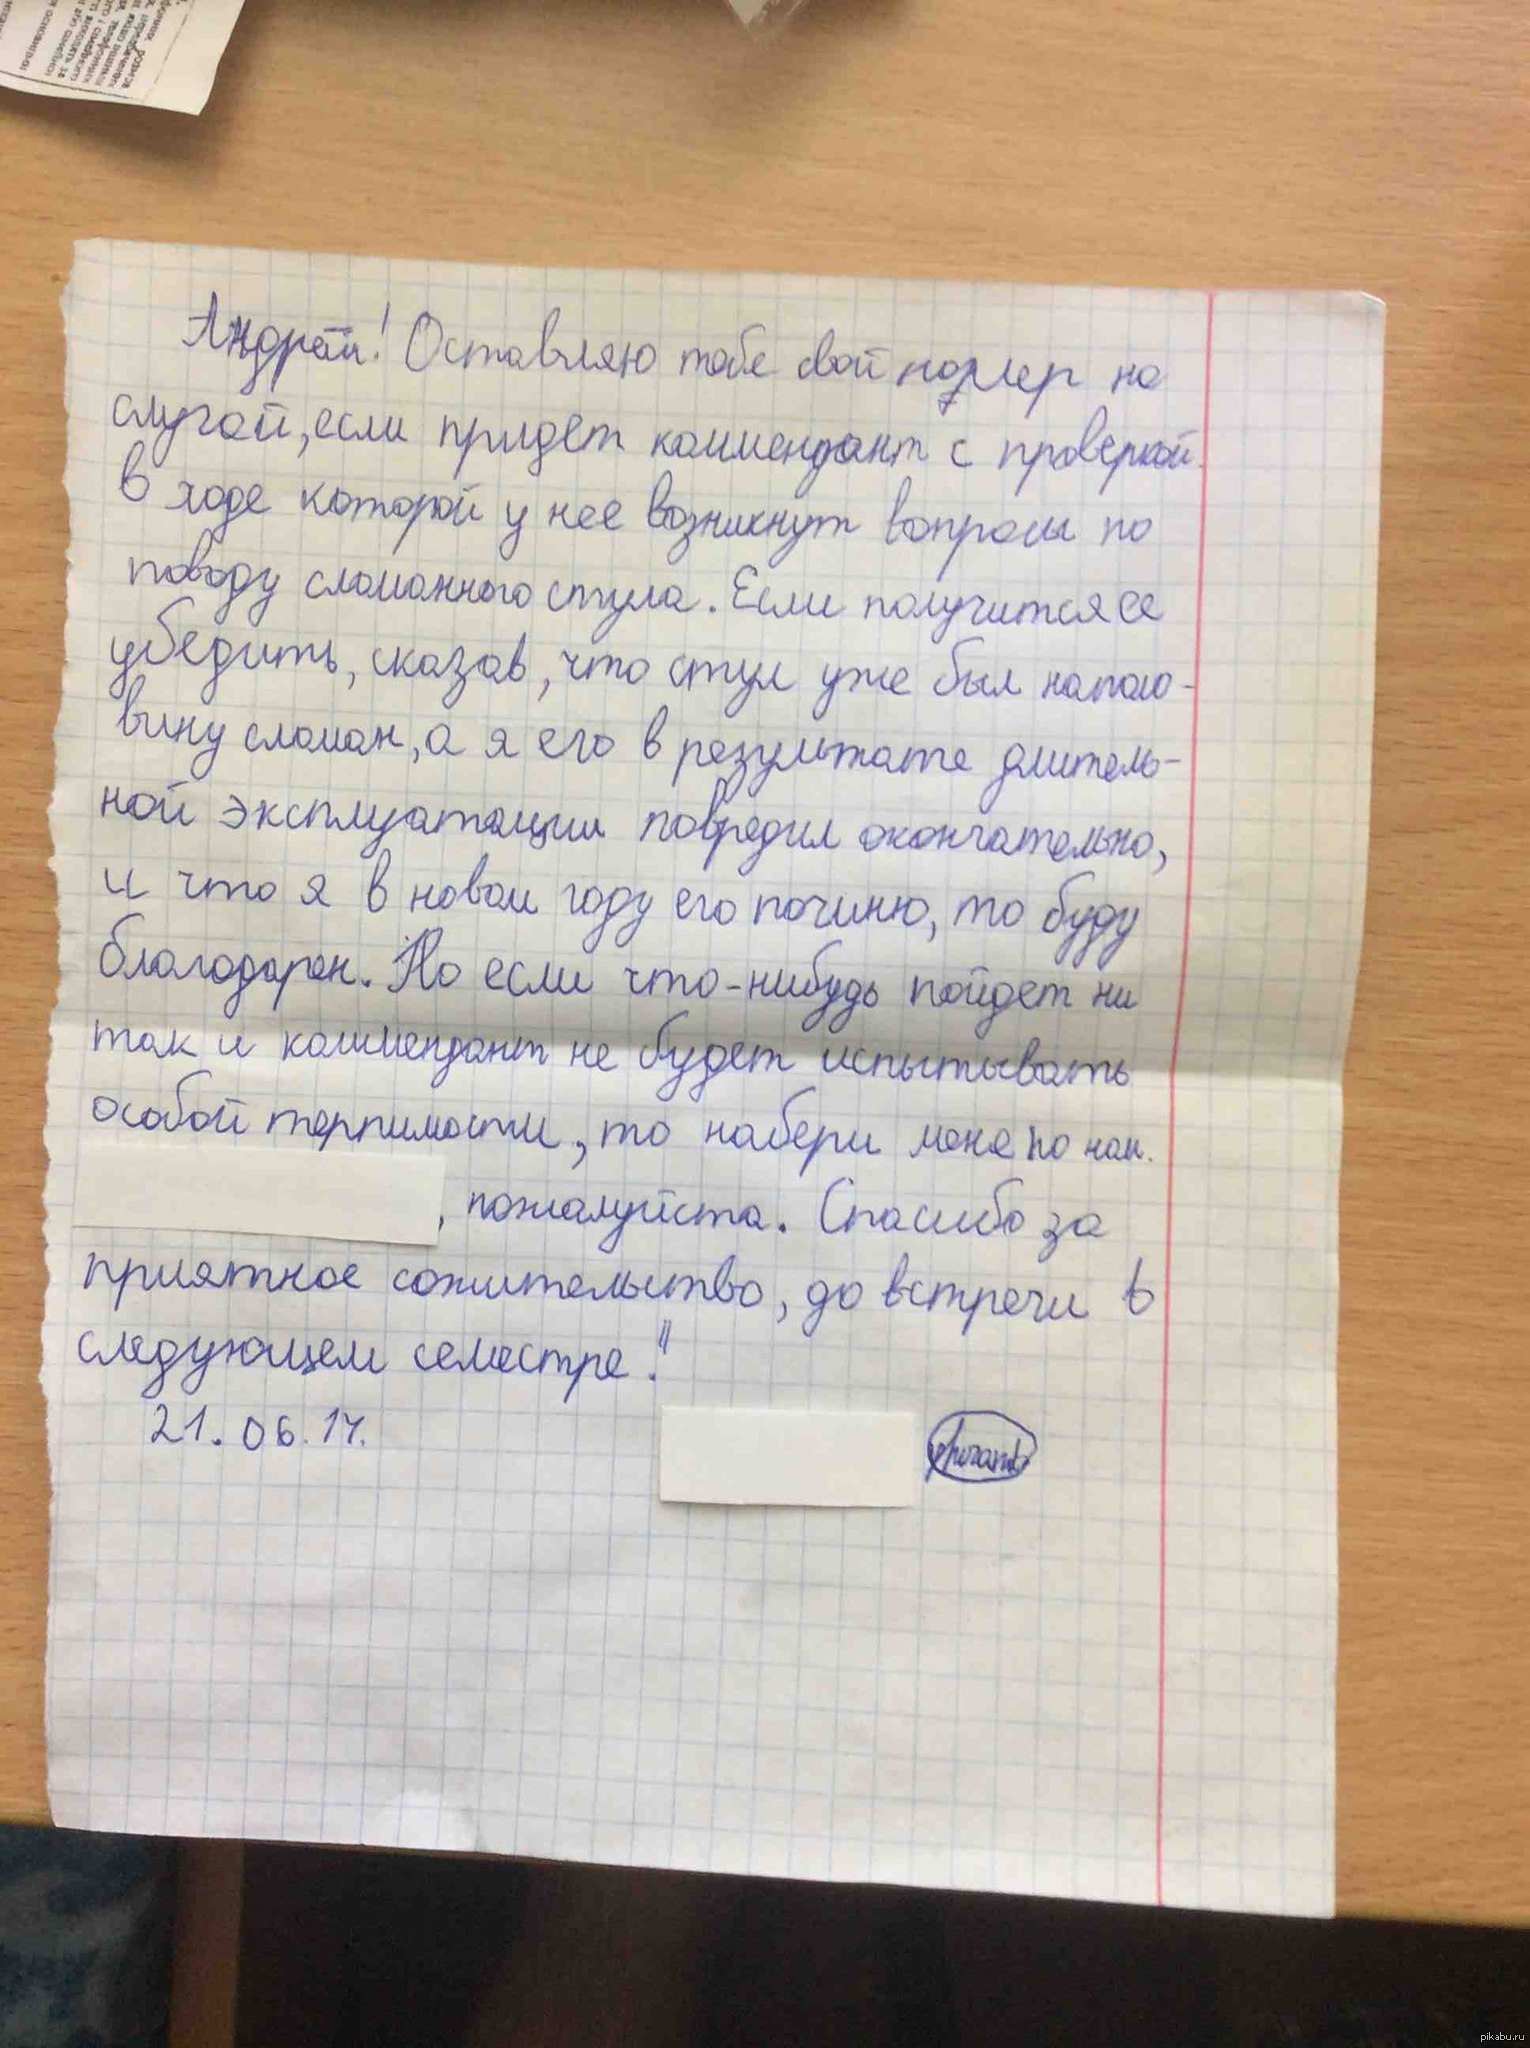 Андрей! Оставляю тебе свой номер на
случай, если придет коммендант с проверкой
в ходе которой у нее возникнут вопросы по
поводу сломанного стула. Если получится ее
убедить, сказав, что стул уже был наполо-
вину сломан, а я его в результате длитель-
ной эксплуатации повредил окончательно,
и что я в новом году его починю, то буду
благодарен. Но если что-нибудь пойдет ни
так и коммендант не будет испытывать
особой терпимости, то набери меня по ном.
, пожалуйста. Спасибо за
приятное сожительство, до встречи в
следующем семестре!"
21.06.17.
pikabu.ru